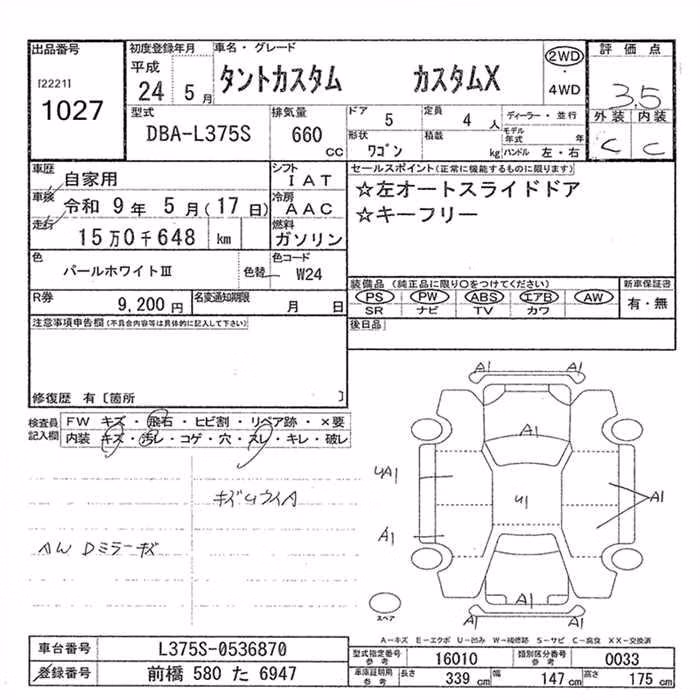 出品番号
[2221]
1027
初度登録年月
平成
24 5月
車名・グレード
タントカスタム カスタムX
2WD
・
4WD
評価点
3.5
外装 内装
C C
型式
DBA-L375S
排気量
660
cc
ドア 5
定員 4 人
形状 ワゴン
積載 kg
ディーラー・並行
モデル年式 年
ハンドル 左・右
車歴 自家用
車検 令和 9年 5月(17日)
走行 15万0千648 km
シフト
IAT
冷房
AAC
燃料
ガソリン
セールスポイント(正常に機能するものに限ります)
☆左オートスライドドア
☆キーフリー
色
パールホワイトⅢ
色替
色コード
W24
R券 9,200円
名変通知期限 月 日
装備品(純正品に限り○をつけてください)
PS PW ABS エアB AW
SR ナビ TV カワ
新車保証書
有・無
後日品
注意事項申告欄(不具合内容等は具体的に記入して下さい)
修復歴 有〔箇所 〕
検査員
記入欄
FW キズ・飛石・ヒビ割・リペア跡・×要
内装 キズ・汚レ・コゲ・穴・スレ・キレ・破レ
AW Dミラーキズ
A1 A1
A1
UA1
U1
A1
A1
A1
A1 A1
スペア
A-キズ E-エクボ U-凹み W-補修跡 S-サビ C-腐食 XX-交換済
車台番号 L375S-0536870
登録番号 前橋 580 た 6947
型式指定番号
参考
16010
類別区分番号
参考
0033
車庫証明用
参考
長さ 339cm 幅 147cm 高さ 175cm